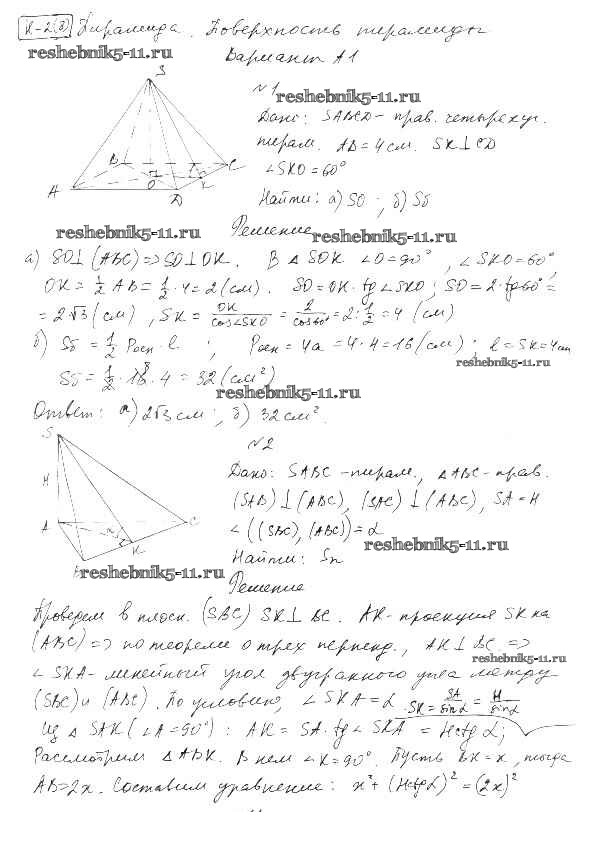 К-2(3) Пирамида. Поверхность пирамиды
reshebnik5-11.ru
Вариант А1
S
№1
reshebnik5-11.ru
Дано: SABCD - прав. четырехуг.
пирам. AB = 4 см. SK ⊥ CD
∠SKO = 60°
Найти: а) SO ; б) Sб
B C
A O K
D
reshebnik5-11.ru
Решение
reshebnik5-11.ru
а) SO ⊥ (ABC) => SO ⊥ OK. В △ SOK ∠O = 90°, ∠SKO = 60°
OK = 1/2 AB = 1/2 · 4 = 2 (см). SO = OK · tg∠SKO ; SO = 2 · tg60° =
= 2√3 (см), SK = OK/cos∠SKO = 2/cos60° = 2 : 1/2 = 4 (см)
б) Sб = 1/2 Pосн · l ; Pосн = 4a = 4 · 4 = 16 (см) ; l = SK = 4 см
reshebnik5-11.ru
Sб = 1/2 · 16 · 4 = 32 (см²)
reshebnik5-11.ru
Ответ: а) 2√3 см ; б) 32 см².
S
№2
Дано: SABC - пирам., △ABC - прав.
H
(SAB) ⊥ (ABC), (SAC) ⊥ (ABC), SA = H
A C
∠((SBC), (ABC)) = α
reshebnik5-11.ru
K
Найти: Sп
reshebnik5-11.ru
Решение
Проведем в плоск. (SBC) SK ⊥ BC. AK - проекция SK на
(ABC) => по теореме о трех перпенд., AK ⊥ BC =>
reshebnik5-11.ru
∠SKA - линейный угол двугранного угла между
(SBC) и (ABC). По условию, ∠SKA = α. SK = SA/sinα = H/sinα
Из △ SAK (∠A = 90°) : AK = SA · tg∠SKA = Hctgα;
Рассмотрим △ABK. В нем ∠K = 90°. Пусть BK = x, тогда
AB = 2x. Составим уравнение: x² + (Hctgα)² = (2x)²